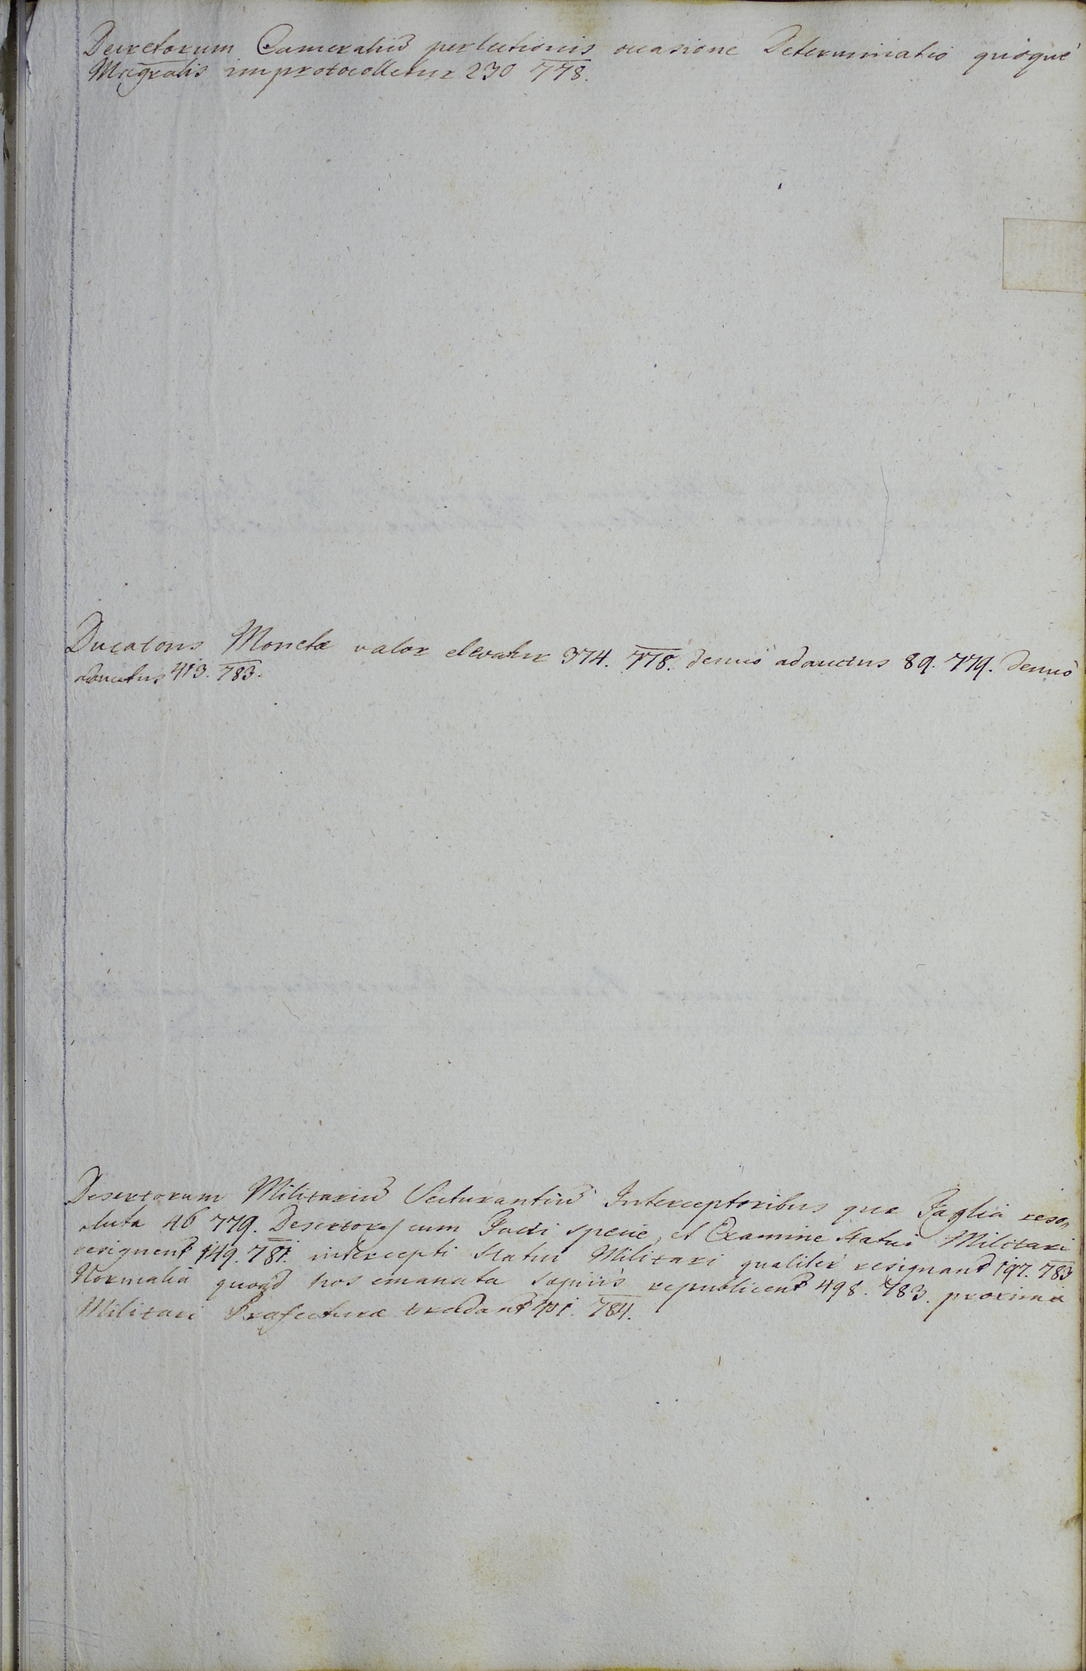 Decretorum Cameraliū perlectionis occasione Determinatio quoque
Magralis improtocolletur 230 778.
Ducatons Monetæ valor elevatur 374. 778. denuo adauctus 89. 779. denuo
adauctus 413. 783.
Desertorum Militariū Interceptoribus quæ Taglia reso-
luta 46 779. Desertores cum Facti specie, et Examine Statui Militari
resignent 149. 781. intercepti Statui Militari qualiter resignand 197. 783
Normalia quoad hos emanata sæpius republicent 498. 783. proximæ
Militari Præfecturæ tradant 411. 784.